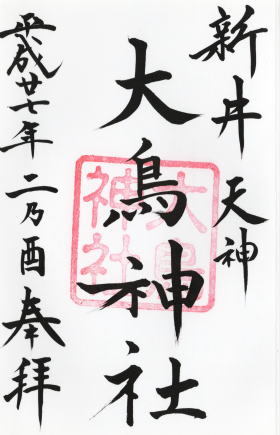 新井天神
大鳥神社
大鳥神社
平成廿七年二乃酉奉拝